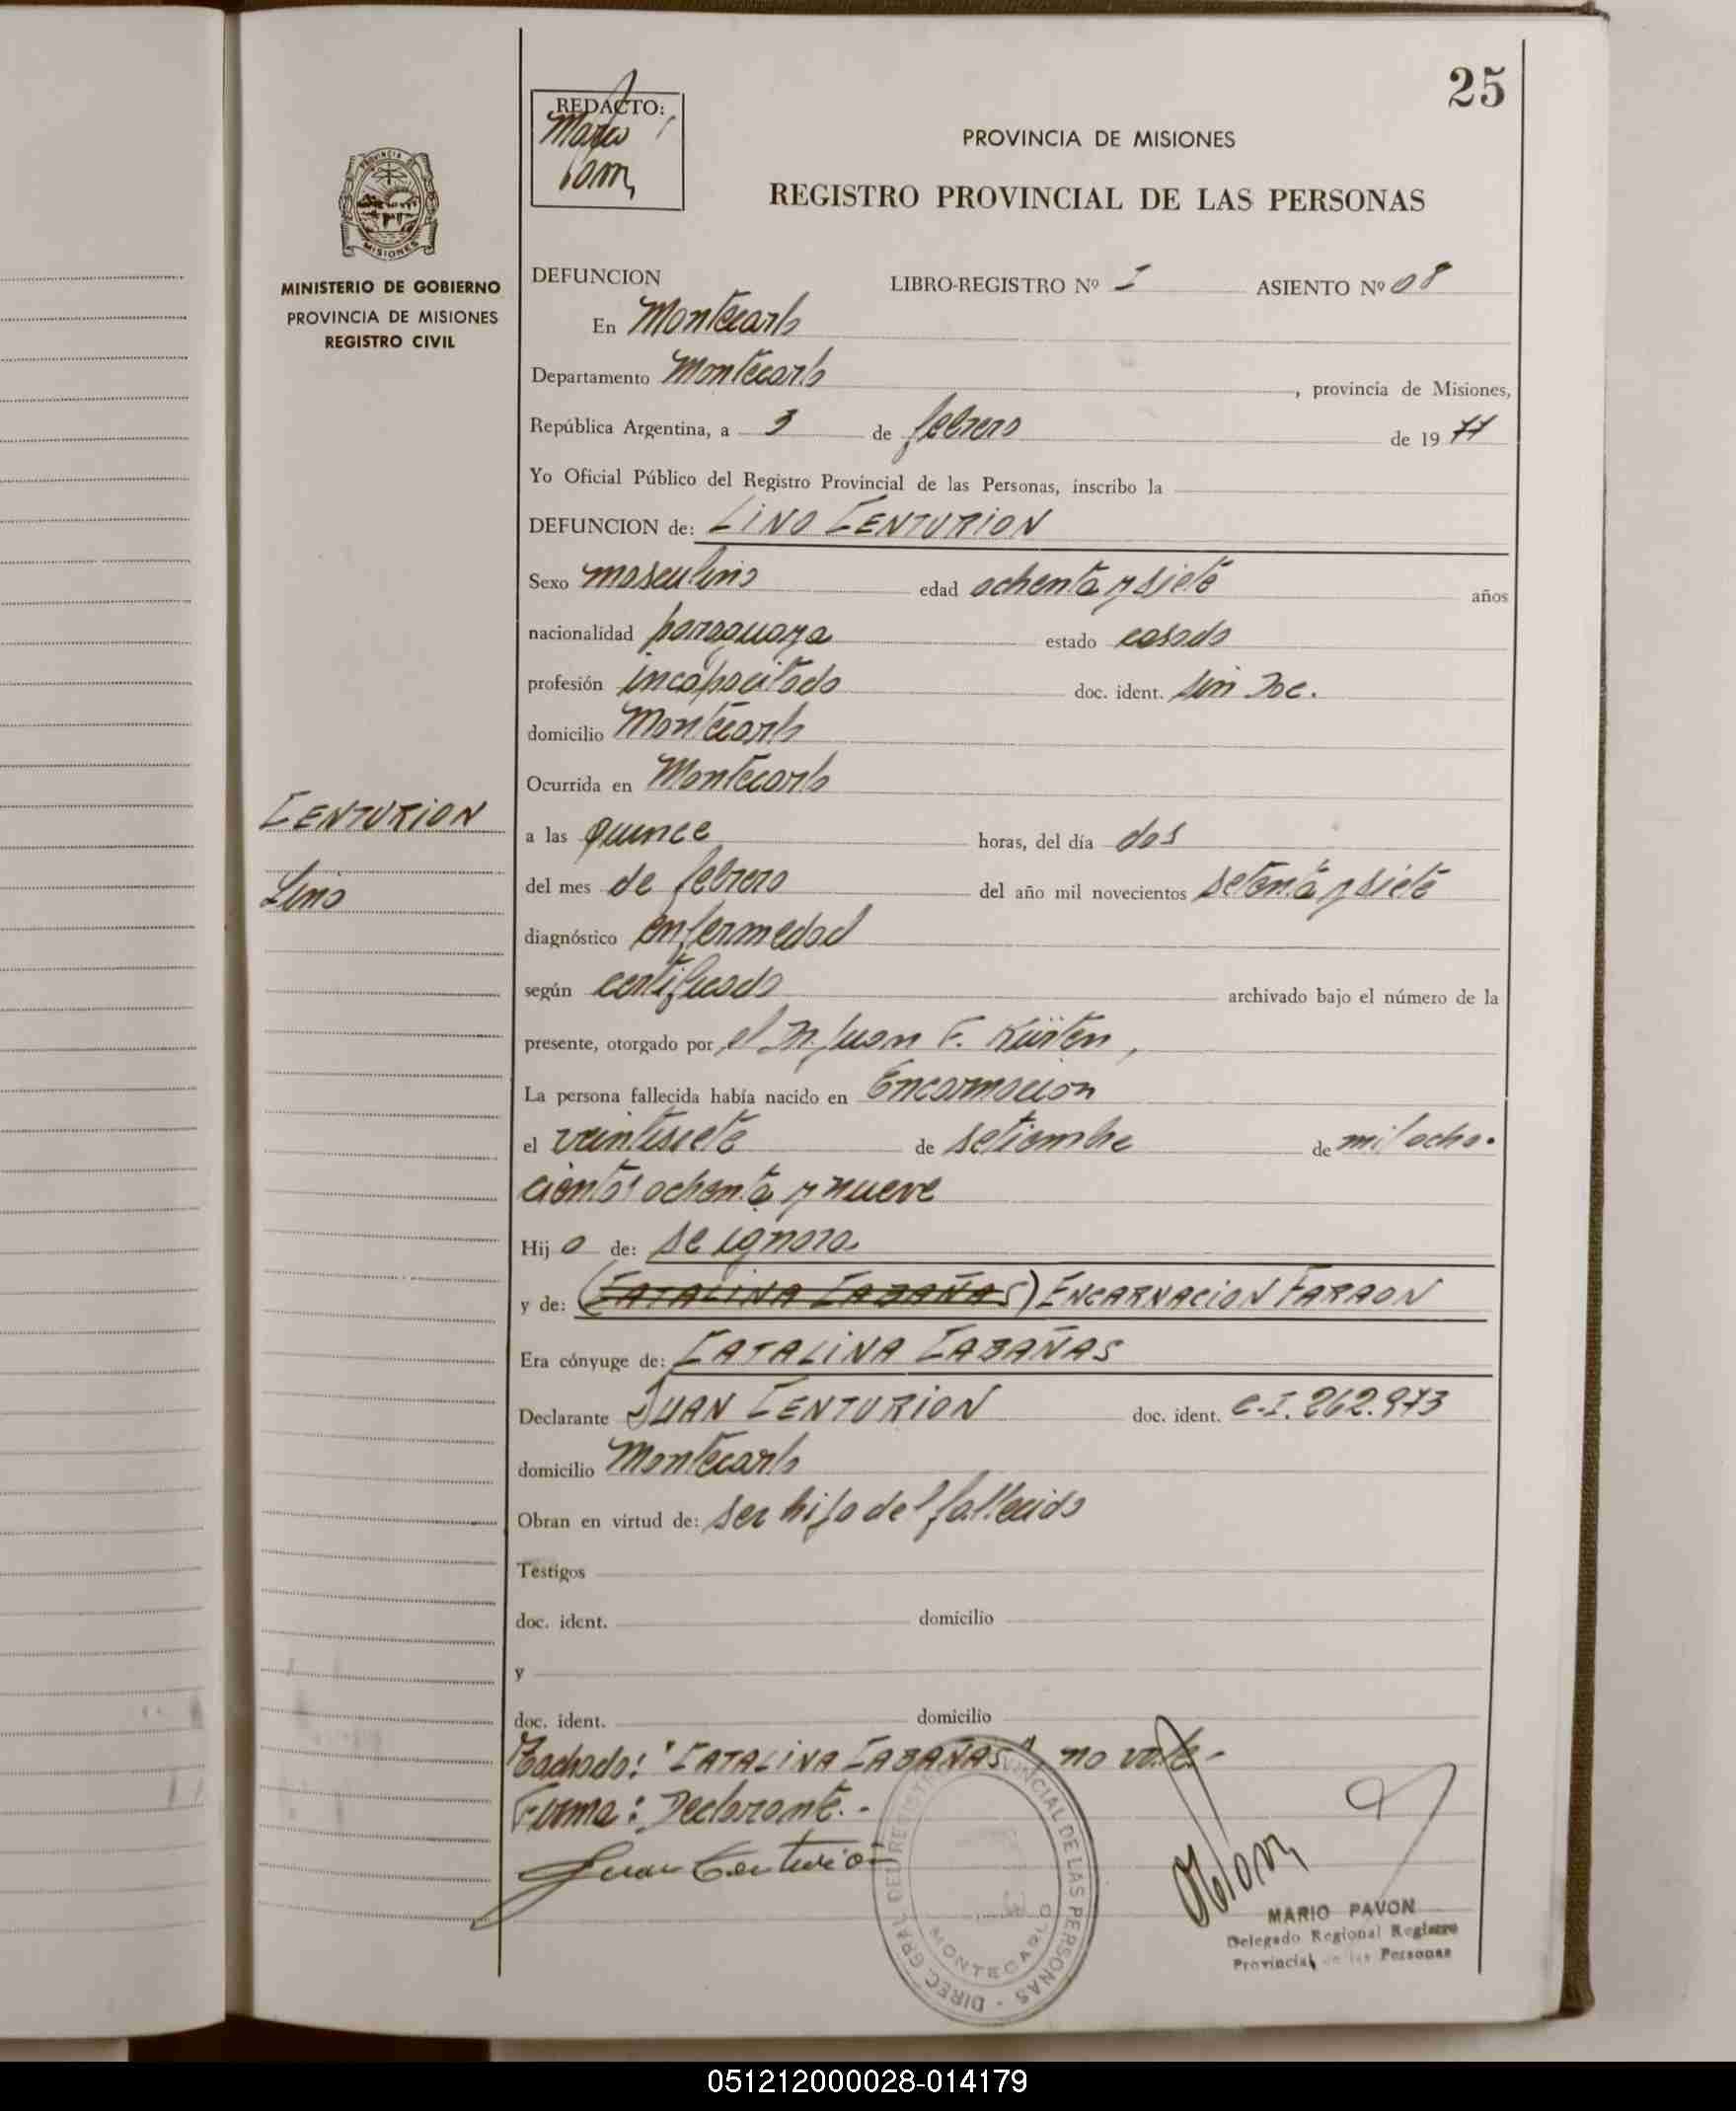 25
REDACTO:
Mario
PROVINCIA DE MISIONES
REGISTRO PROVINCIAL DE LAS PERSONAS
PROVINCIA DE
MISIONES
MINISTERIO DE GOBIERNO
PROVINCIA DE MISIONES
REGISTRO CIVIL
DEFUNCION LIBRO-REGISTRO Nº I ASIENTO Nº 08
En Montecarlo
Departamento Montecarlo, provincia de Misiones,
República Argentina, a 3 de febrero de 1977
Yo Oficial Público del Registro Provincial de las Personas, inscribo la
DEFUNCION de: LINO CENTURION
Sexo masculino edad ochenta y siete años
nacionalidad paraguaya estado casado
profesión incapacitado doc. ident. sin Doc.
domicilio Montecarlo
Ocurrida en Montecarlo
CENTURION
a las quince horas, del día dos
Lino
del mes de febrero del año mil novecientos setenta y siete
diagnóstico enfermedad
según certificado archivado bajo el número de la
presente, otorgado por el Dr. Juan F. Kürten,
La persona fallecida había nacido en Encarnacion
el veintisiete de setiembre de mil ocho-
cientos ochenta y nueve
Hijo de: se ignora
y de: (CATALINA CABAÑAS) ENCARNACION FARAON
Era cónyuge de: CATALINA CABAÑAS
Declarante JUAN CENTURION doc. ident. C.I. 262.973
domicilio Montecarlo
Obran en virtud de: ser hijo del fallecido
Testigos
doc. ident. domicilio
y
doc. ident. domicilio
Tachado: "CATALINA CABAÑAS", no vale.-
Firma: Declarante.-
Juan Centurion
DIREC. GRAL. DEL REGISTRO PROVINCIAL DE LAS PERSONAS -
MONTECARLO
MARIO PAVON
Delegado Regional Registro
Provincial de las Personas
051212000028-014179